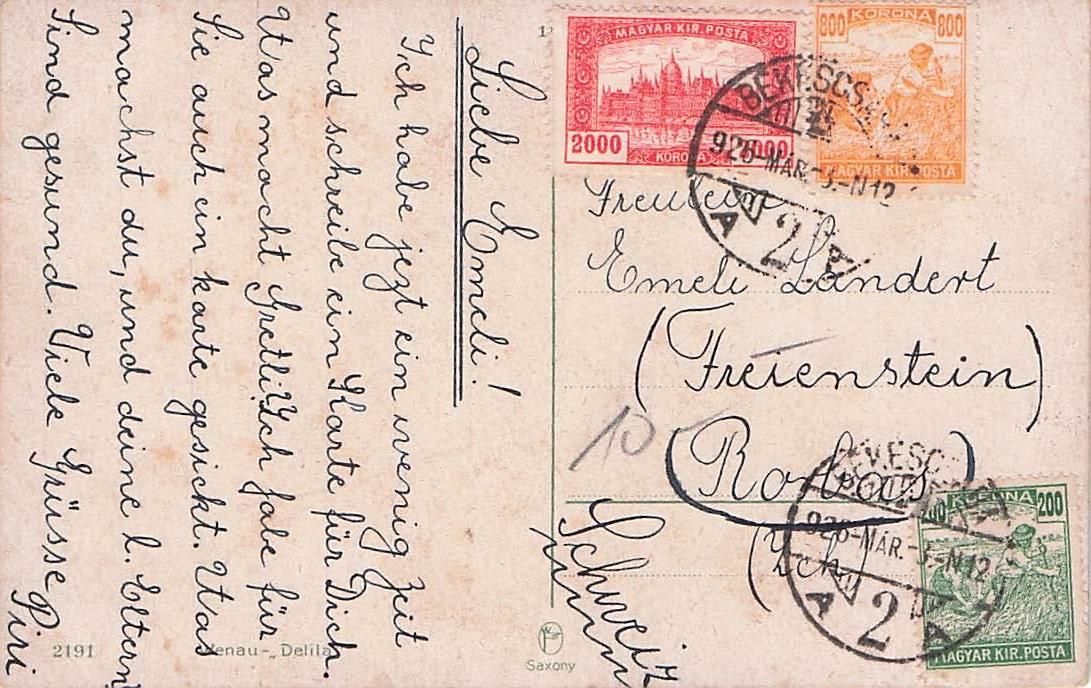 Liebe Emeli!
Ich habe jezt ein wenig zeit
und schreibe ein Karte für Dich.
Was macht Gretli? Ich habe für
Sie auch ein karte gesickt. Was
machst du, und deine l. Eltern?
Sind gesund. Viele Grüsse
Piri
2191
Saxony
MAGYAR KIR. POSTA
2000
KORONA
800 KORONA 800
MAGYAR KIR. POSTA
926-MÁR.-3.-N12
A 2 A
Freulein
Emeli Landert
(Freienstein)
(Rorbas)
10
Schweiz
926-MÁR.-3.-N12
A 2 A
200 KORONA 200
MAGYAR KIR. POSTA